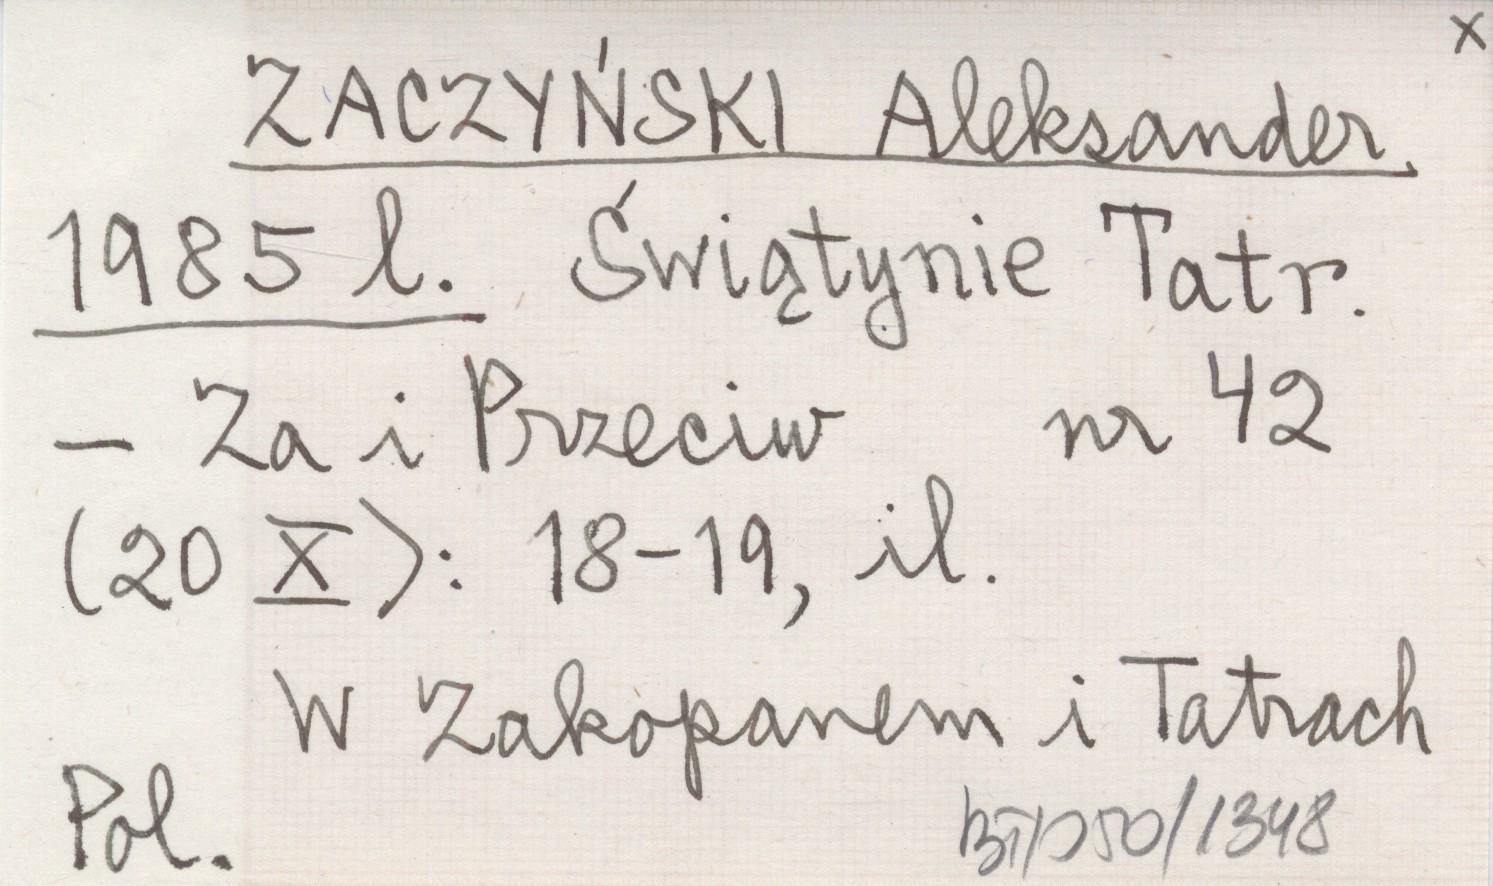 x
ZACZYŃSKI Aleksander.
1985 l. Świątynie Tatr.
- Za i Przeciw nr 42
(20 X): 18-19, il.
W Zakopanem i Tatrach
Pol.
/1348